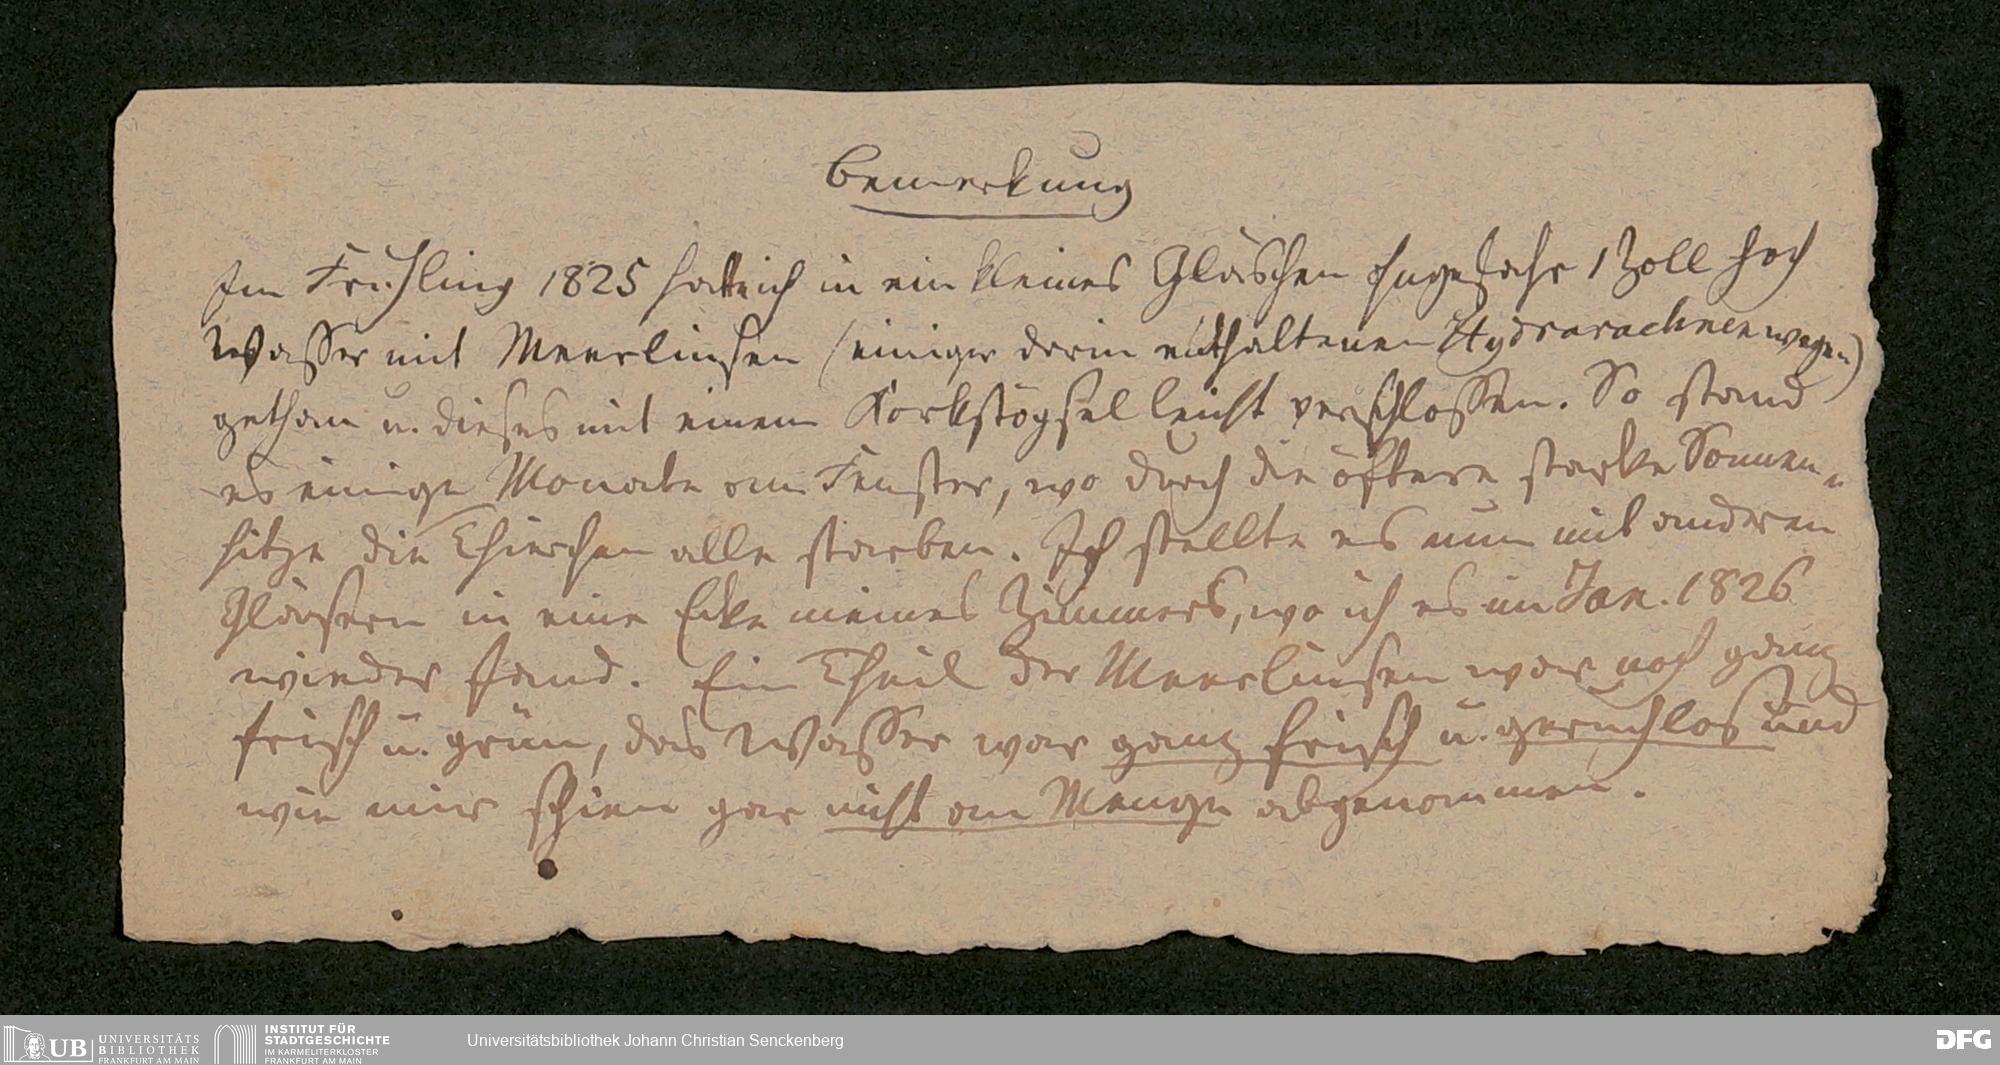 Bemerkung
Im Frühling 1825 hatte ich in ein kleines Gläschen ungefähr 1 Zoll hoch
Wasser mit Meerlinsen (einiger darin enthaltenen Hydrarachnen wegen)
gethan u. dieses mit einem Korkstöpsel leicht verschlossen. So stand
es einige Monate am Fenster, wo durch die öftere starke Sonnen-
hitze die Thierchen alle starben. Ich stellte es nun mit anderen
Gläsern in eine Ecke meines Zimmers, wo ich es im Jan. 1826
wieder fand. Ein Theil der Meerlinsen war noch ganz
frisch u. grün, das Wasser war ganz frisch u. geruchlos und
wie mir schien gar nicht an Menge abgenommen.
UB UNIVERSITÄTS
BIBLIOTHEK
FRANKFURT AM MAIN
INSTITUT FÜR
STADTGESCHICHTE
IM KARMELITERKLOSTER
FRANKFURT AM MAIN
Universitätsbibliothek Johann Christian Senckenberg
DFG